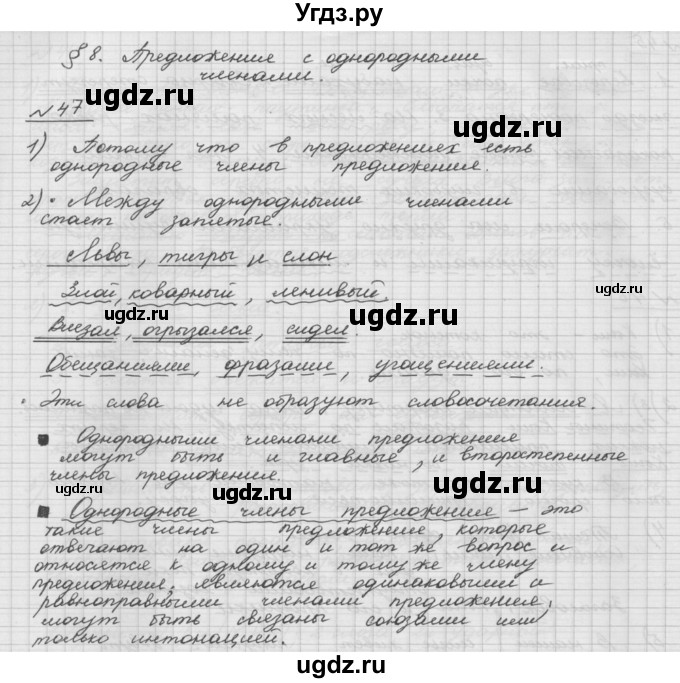 Угдз.ру
§ 8. Предложения с однородными
членами.
№47
1) Потому что в предложениях есть
однородные члены предложения.
2) • Между однородными членами
стаят запятые.
Львы, тигры и слон.
Злой, коварный, ленивый.
Влезал, огрызался, сидел.
Обещаниями, фразами, угощениями.
• Эти слова не образуют словосочетания.
Однородными членами предложения
могут быть и главные, и второстепенные
члены предложения.
Однородные члены предложения — это
такие члены предложение, которые
отвечают на один и тот же вопрос и
относятся к одному и тому же члену
предложения, являются одинаковыми и
равноправными членами предложения,
могут быть связаны союзами или
только интонацией.
ugdz.ru
ugdz.ru
ugdz.ru
ugdz.ru
ugdz.ru
ugdz.ru
ugdz.ru
ugdz.ru
ugdz.ru
ugdz.ru
ugdz.ru
ugdz.ru